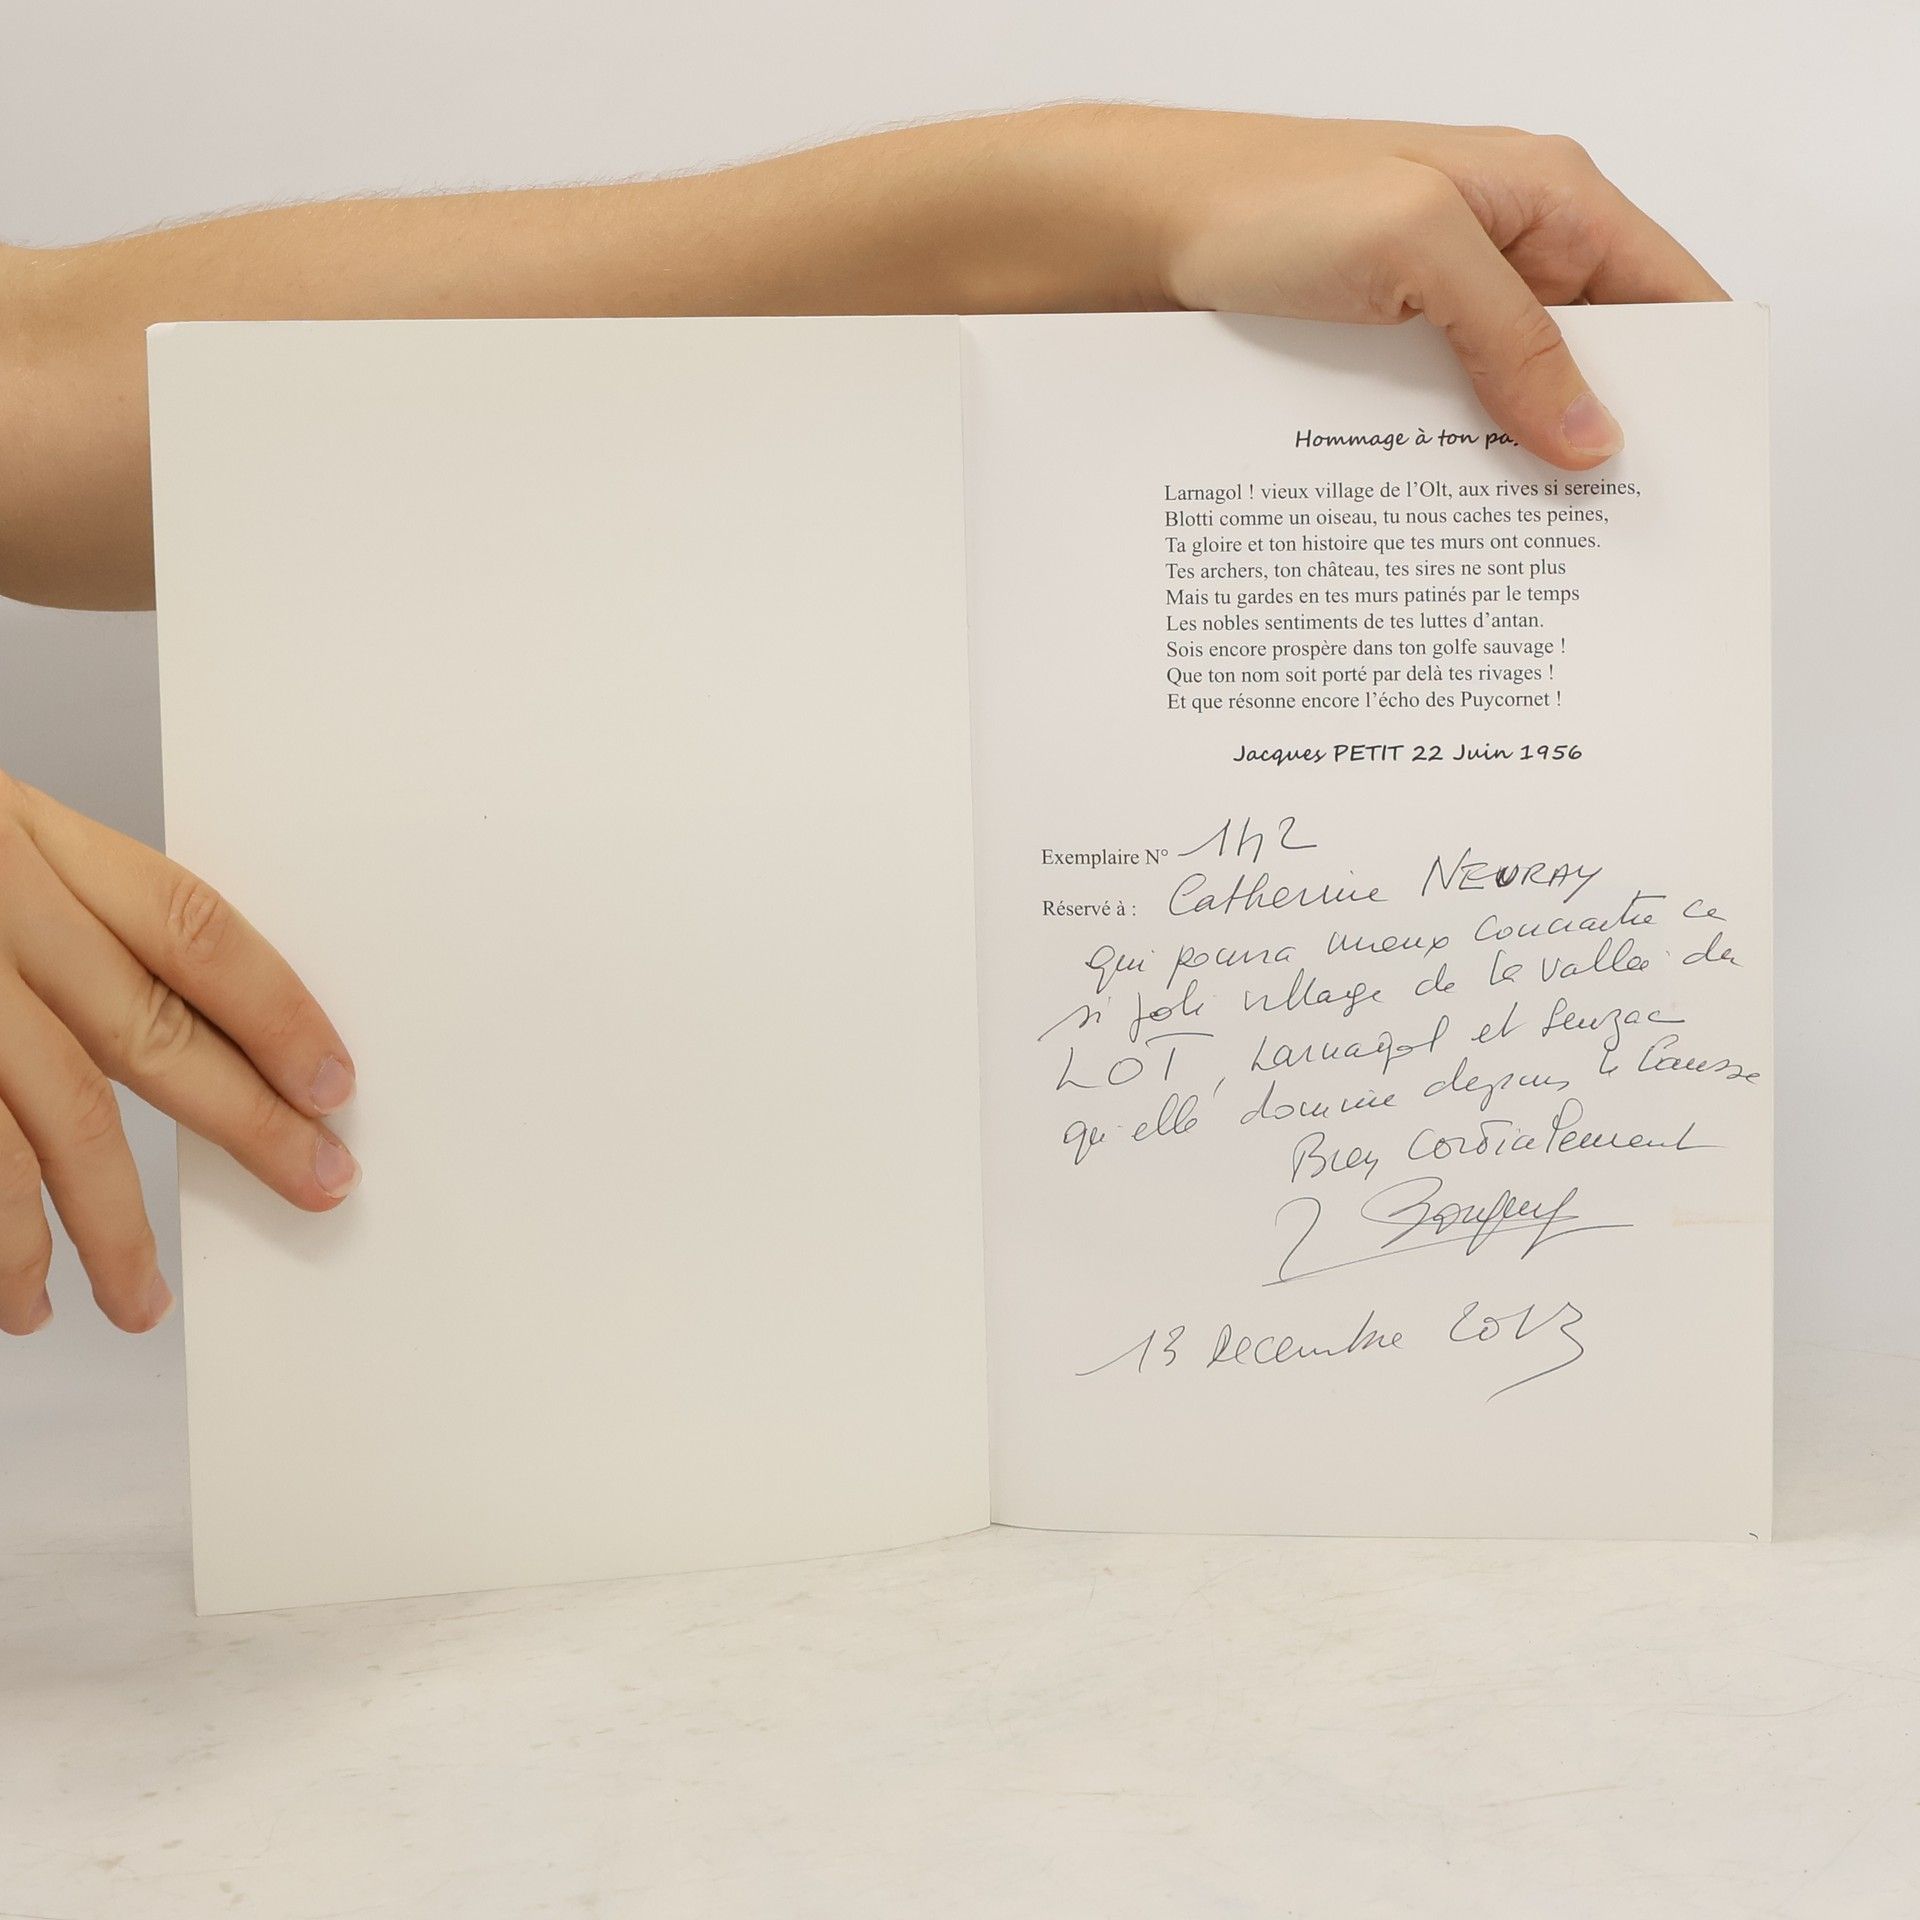 Hommage à ton
Larnagol ! vieux village de l'Olt, aux rives si sereines,
Blotti comme un oiseau, tu nous caches tes peines,
Ta gloire et ton histoire que tes murs ont connues.
Tes archers, ton château, tes sires ne sont plus
Mais tu gardes en tes murs patinés par le temps
Les nobles sentiments de tes luttes d'antan.
Sois encore prospère dans ton golfe sauvage !
Que ton nom soit porté par delà tes rivages !
Et que résonne encore l'écho des Puycornet !
Jacques PETIT 22 Juin 1956
Exemplaire N° 142
Réservé à : Catherine NEURAY
qui pourra mieux connaitre ce
si joli village de la vallée du
LOT, Larnagol et Seuzac
qu'elle domine depuis le Causse
Bien cordialement
13 decembre 2013